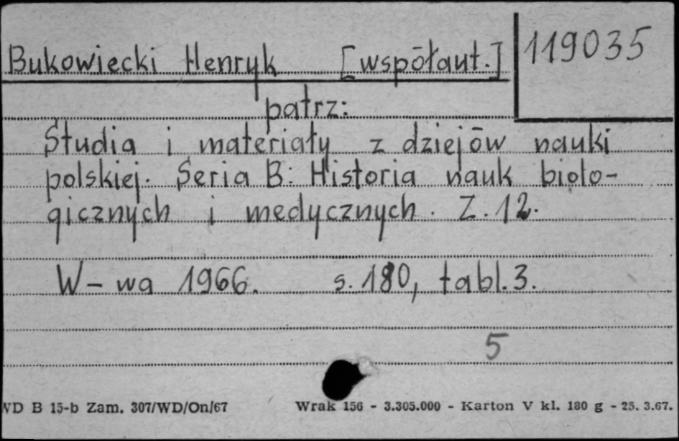 Bukowiecki Henryk [współaut.] 119035
patrz:
Studia i materiały z dziejów nauki
polskiej. Seria B: Historia nauk biolo-
gicznych i medycznych. Z. 12.
W-wa 1966. s. 180, tabl. 3.
5
WD B 15-b Zam. 307/WD/On/67 Wrak 156 - 3.305.000 - Karton V kl. 180 g - 25. 3.67.